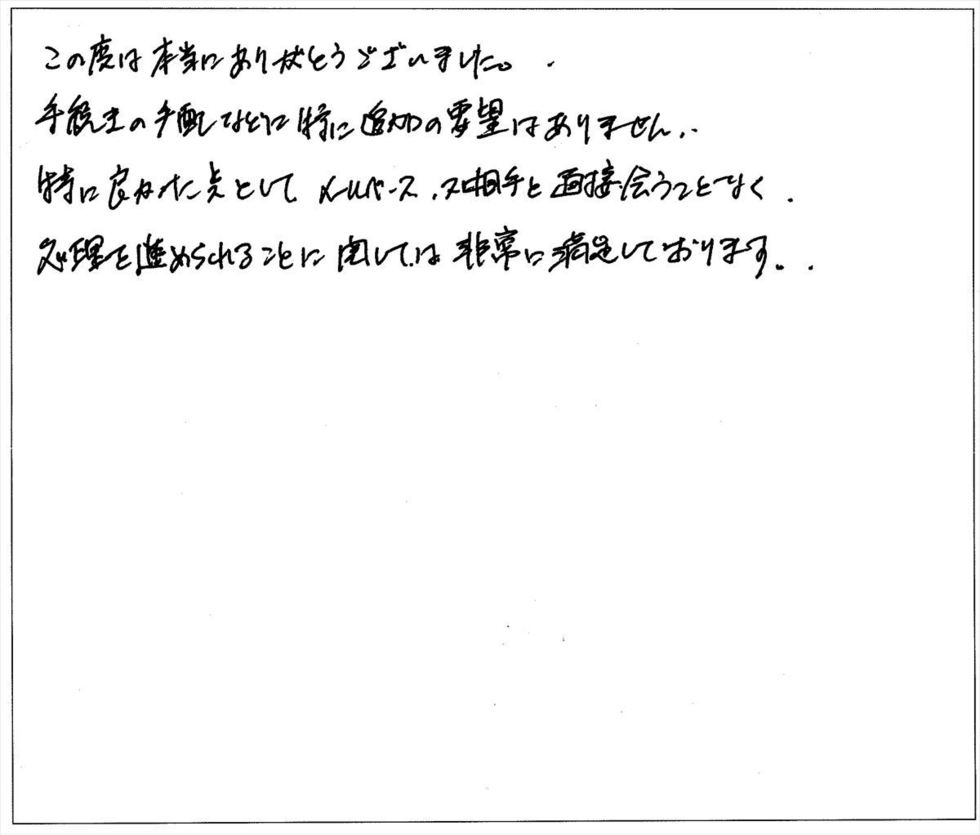 この度は本当にありがとうございました。
手続きの手配などに特に追加の要望はありません。
特に良かった点として メールベース、相手と直接会うことなく、
処理を進められることに関しては 非常に満足しております。